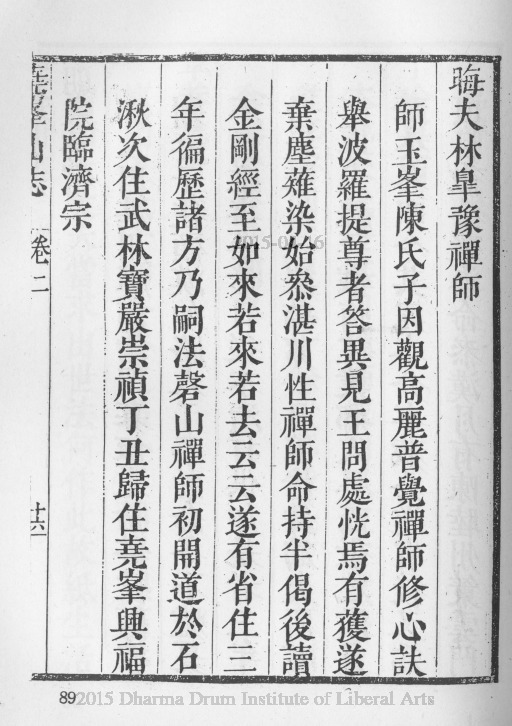 晦夫林臯豫禪師
師玉峯陳氏子因觀高麗普覺禪師修心訣
舉波羅提尊者答異見王問處恍焉有獲遂
棄塵薙染始叅湛川性禪師命持半偈後讀
金剛經至如來若來若去云云遂有省住三
年徧歷諸方乃嗣法磬山禪師初開道於石
湫次住武林寶嚴崇禎丁丑歸住堯峯興福
院臨濟宗
堯峯山志
卷二
十六
89
2015 Dharma Drum Institute of Liberal Arts